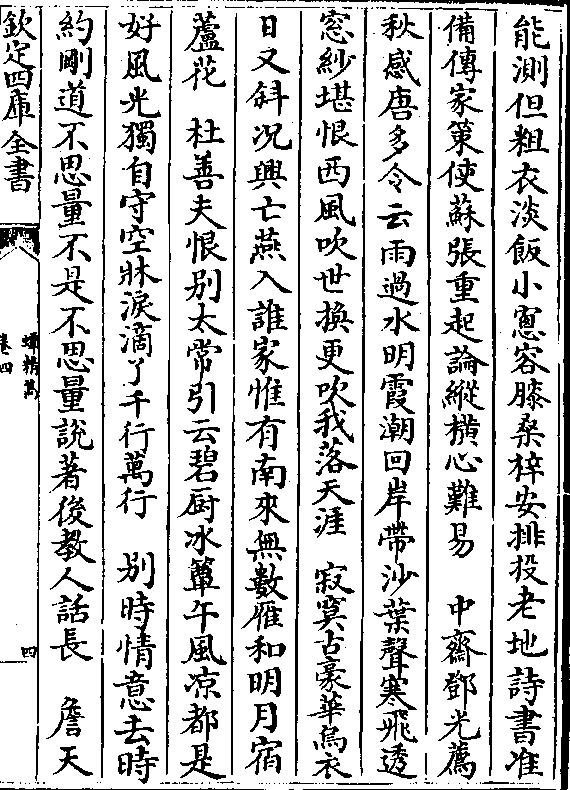 能測但粗衣淡飯小窻容膝桑梓安排投老地詩書准
備傳家䇿使蘇張重起論縱橫心難易　中齋鄧光薦
秋感唐多令云雨過水明霞潮回岸帶沙葉聲寒飛透
窓紗堪恨西風吹世換更吹我落天涯　寂寞古豪華烏衣
日又斜况興亡燕入誰家惟有南來無數雁和明月宿
蘆花　杜善夫恨别太常引云碧厨冰簟午風凉都是
好風光獨自守空牀淚滴了千行萬行　别時情意去時
約剛道不思量不是不思量說著後教人話長　詹天
欽定四庫全書
蟫精雋
卷四
四